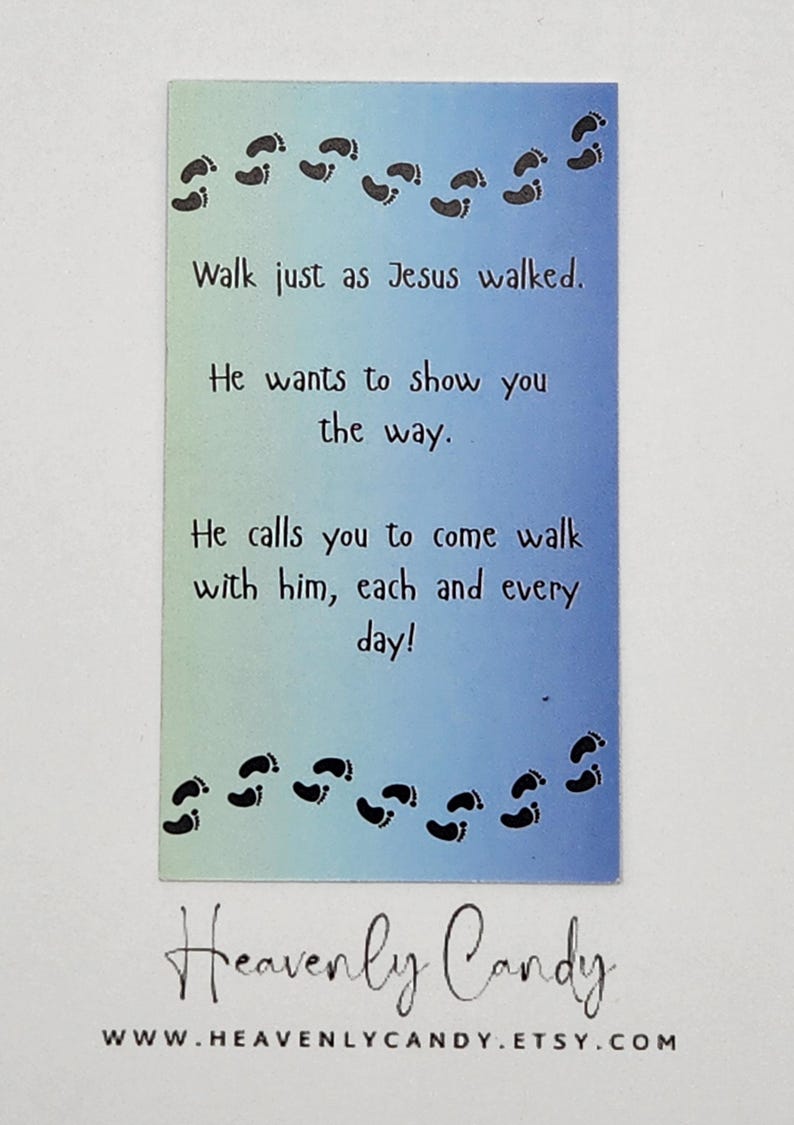 Walk just as Jesus walked.
He wants to show you
the way.
He calls you to come walk
with him, each and every
day!
Heavenly Candy
WWW.HEAVENLYCANDY.ETSY.COM